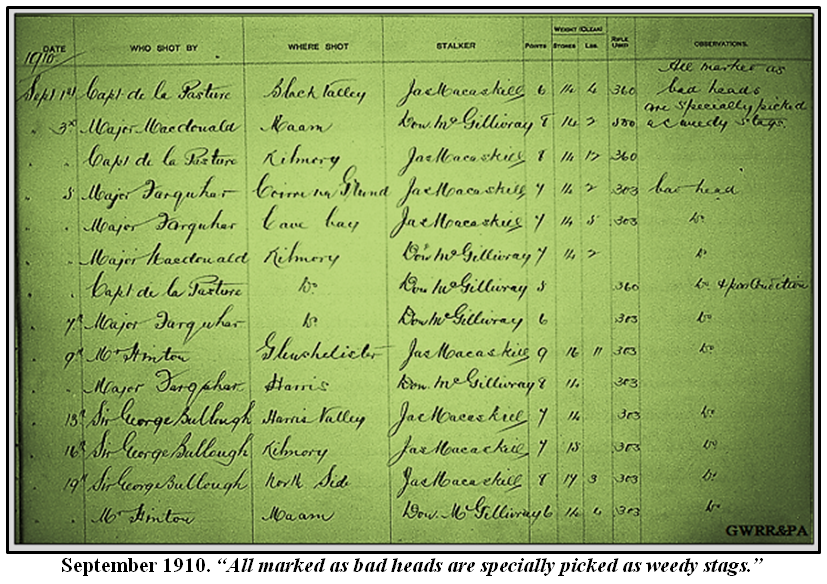 WEIGHT (CLEAN)
DATE WHO SHOT BY WHERE SHOT STALKER POINTS STONES LBS. RIFLE USED OBSERVATIONS.
1910
All marked as
Sept 1st Capt de la Pasture Black Valley Jas Macaskill 6 14 4 360 bad heads
are specially picked
" 3rd Major Macdonald Maam Don. McGillivray 8 14 2 as weedy stags.
" " Capt de la Pasture Kilmory Jas Macaskill 8 14 12 360
" 5 Major Farquhar Jas Macaskill 7 14 2 303 bad head
" " Major Farquhar Cave bay Jas Macaskill 7 14 5 303 Do
" " Major Macdonald Kilmory Don McGillivray 7 14 2 Do
" " Capt de la Pasture Do Don McGillivray 360 Do & poor Condition
" 7th Major Farquhar Do Don McGillivray 6 303 Do
" 9th Mr Hinton Jas Macaskill 9 16 11 303 Do
" " Major Farquhar Harris Don. McGillivray 8 14 303
" Sir George Bullough Harris Valley Jas Macaskill 7 14 303 Do
" 16th Sir George Bullough Kilmory Jas Macaskill 7 303 Do
" 19th Sir George Bullough North Side Jas Macaskill 8 17 3 303 Do
" " Mr Hinton Maam Don. McGillivray 6 14 6 303 Do
GWRR&PA
September 1910. “All marked as bad heads are specially picked as weedy stags.”